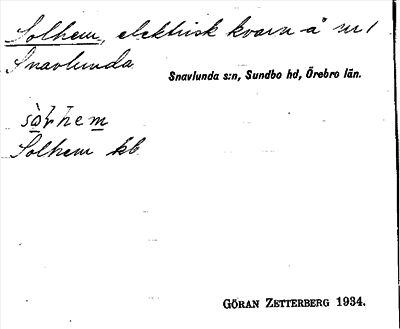 Solhem, elektrisk kvarn å nr 1
Snavlunda
Snavlunda s:n, Sundbo hd, Örebro län.
Solhem kb
GÖRAN ZETTERBERG 1934.